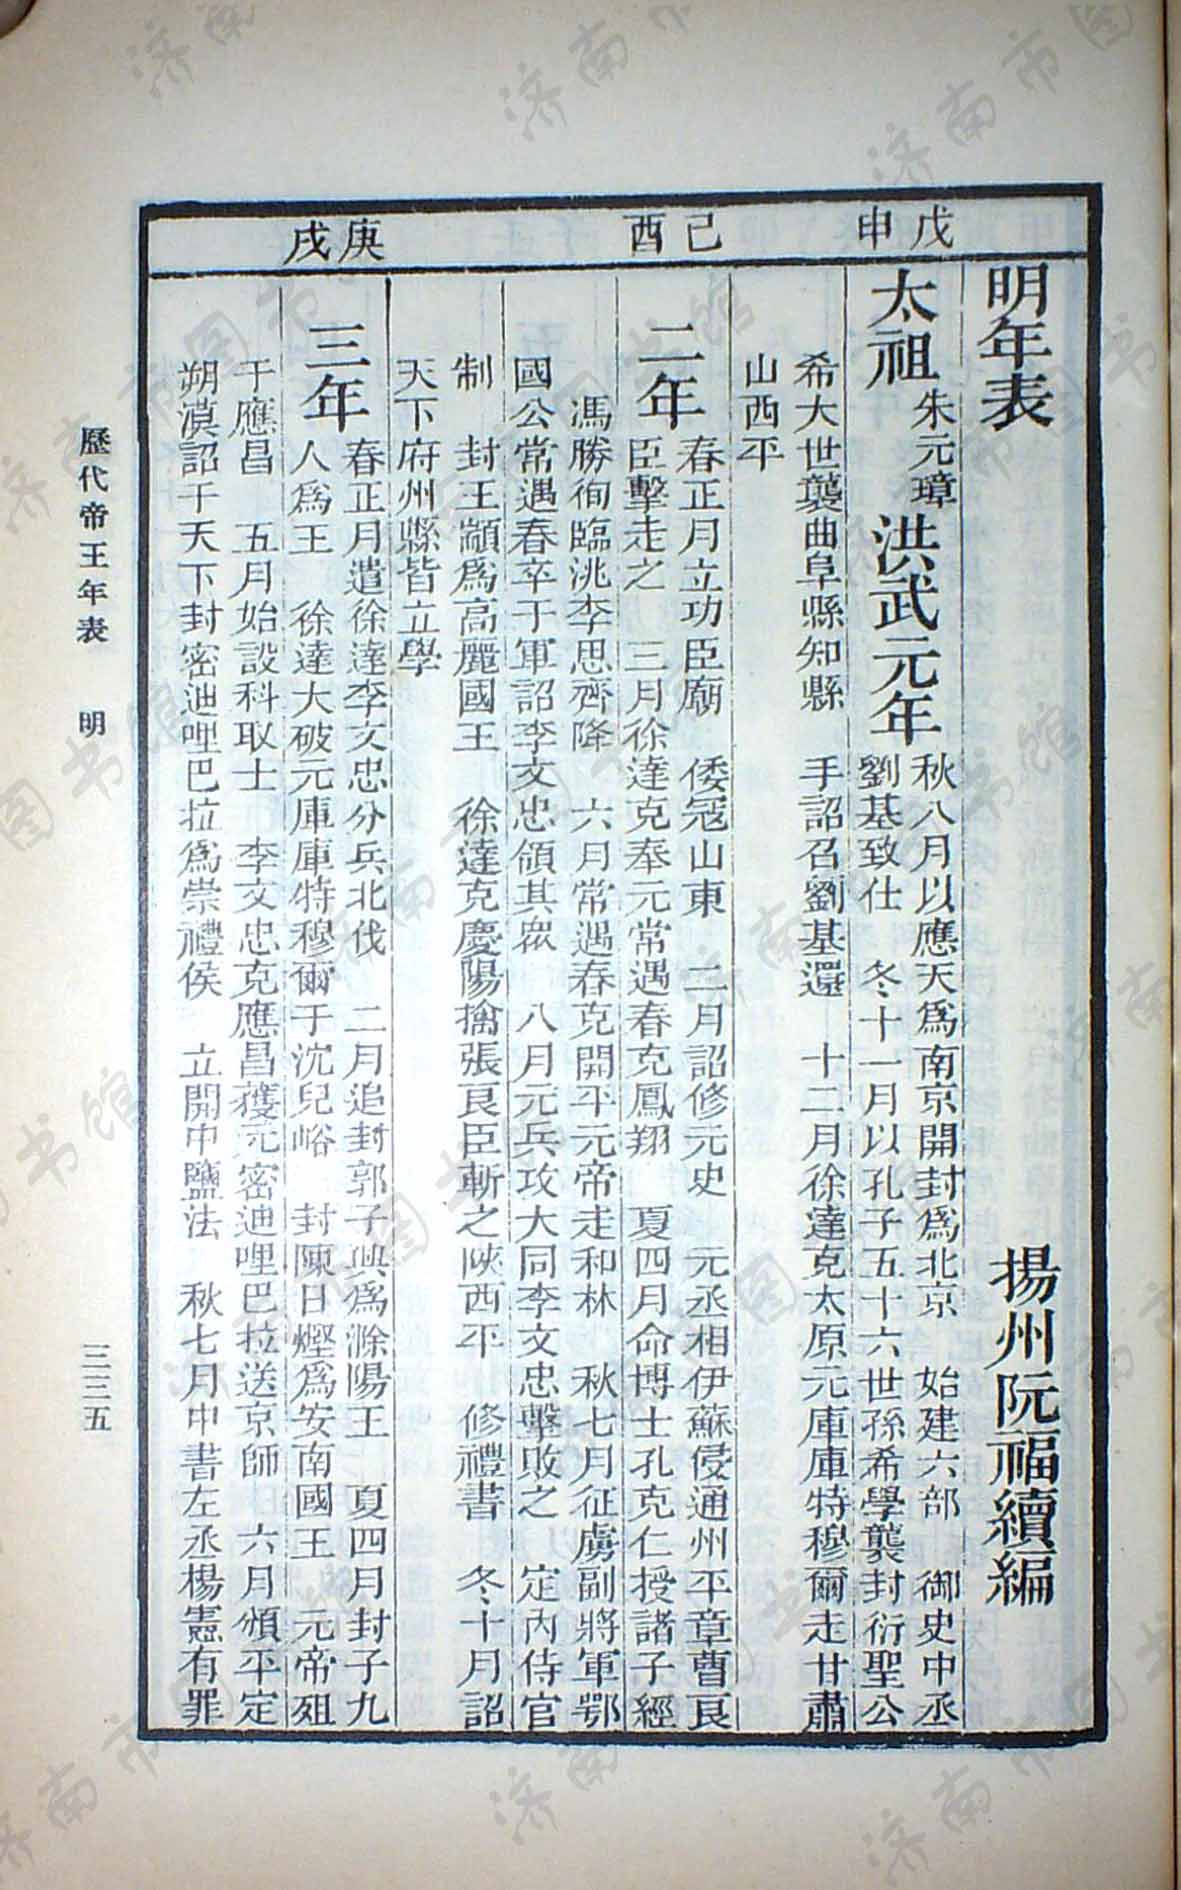 戊申
己酉
庚戌
明年表
揚州阮福續編
太祖
朱元璋
洪武元年
秋八月以應天爲南京開封爲北京　始建六部　御史中丞
劉基致仕　冬十一月以孔子五十六世孫希學襲封衍聖公
希大世襲曲阜縣知縣　手詔召劉基還　十二月徐達克太原元庫庫特穆爾走甘肅
山西平
二年
春正月立功臣廟　倭寇山東　二月詔修元史　元丞相伊蘇侵通州平章曹良
臣擊走之　三月徐達克奉元常遇春克鳳翔　夏四月命博士孔克仁授諸子經
馮勝徇臨洮李思齊降　六月常遇春克開平元帝走和林　秋七月征虜副將軍鄂
國公常遇春卒于軍詔李文忠領其眾　八月元兵攻大同李文忠擊敗之　定內侍官
制　封王顓爲高麗國王　徐達克慶陽擒張良臣斬之陝西平　修禮書　冬十月詔
天下府州縣皆立學
三年
春正月遣徐達李文忠分兵北伐　二月追封郭子興爲滁陽王　夏四月封子九
人爲王　徐達大破元庫庫特穆爾于沈兒峪　封陳日熞爲安南國王　元帝殂
于應昌　五月始設科取士　李文忠克應昌獲元密迪哩巴拉送京師　六月頒平定
朔漠詔于天下封密迪哩巴拉爲崇禮侯　立開中鹽法　秋七月中書左丞楊憲有罪
歷代帝王年表　明
三三五
济南市图书馆